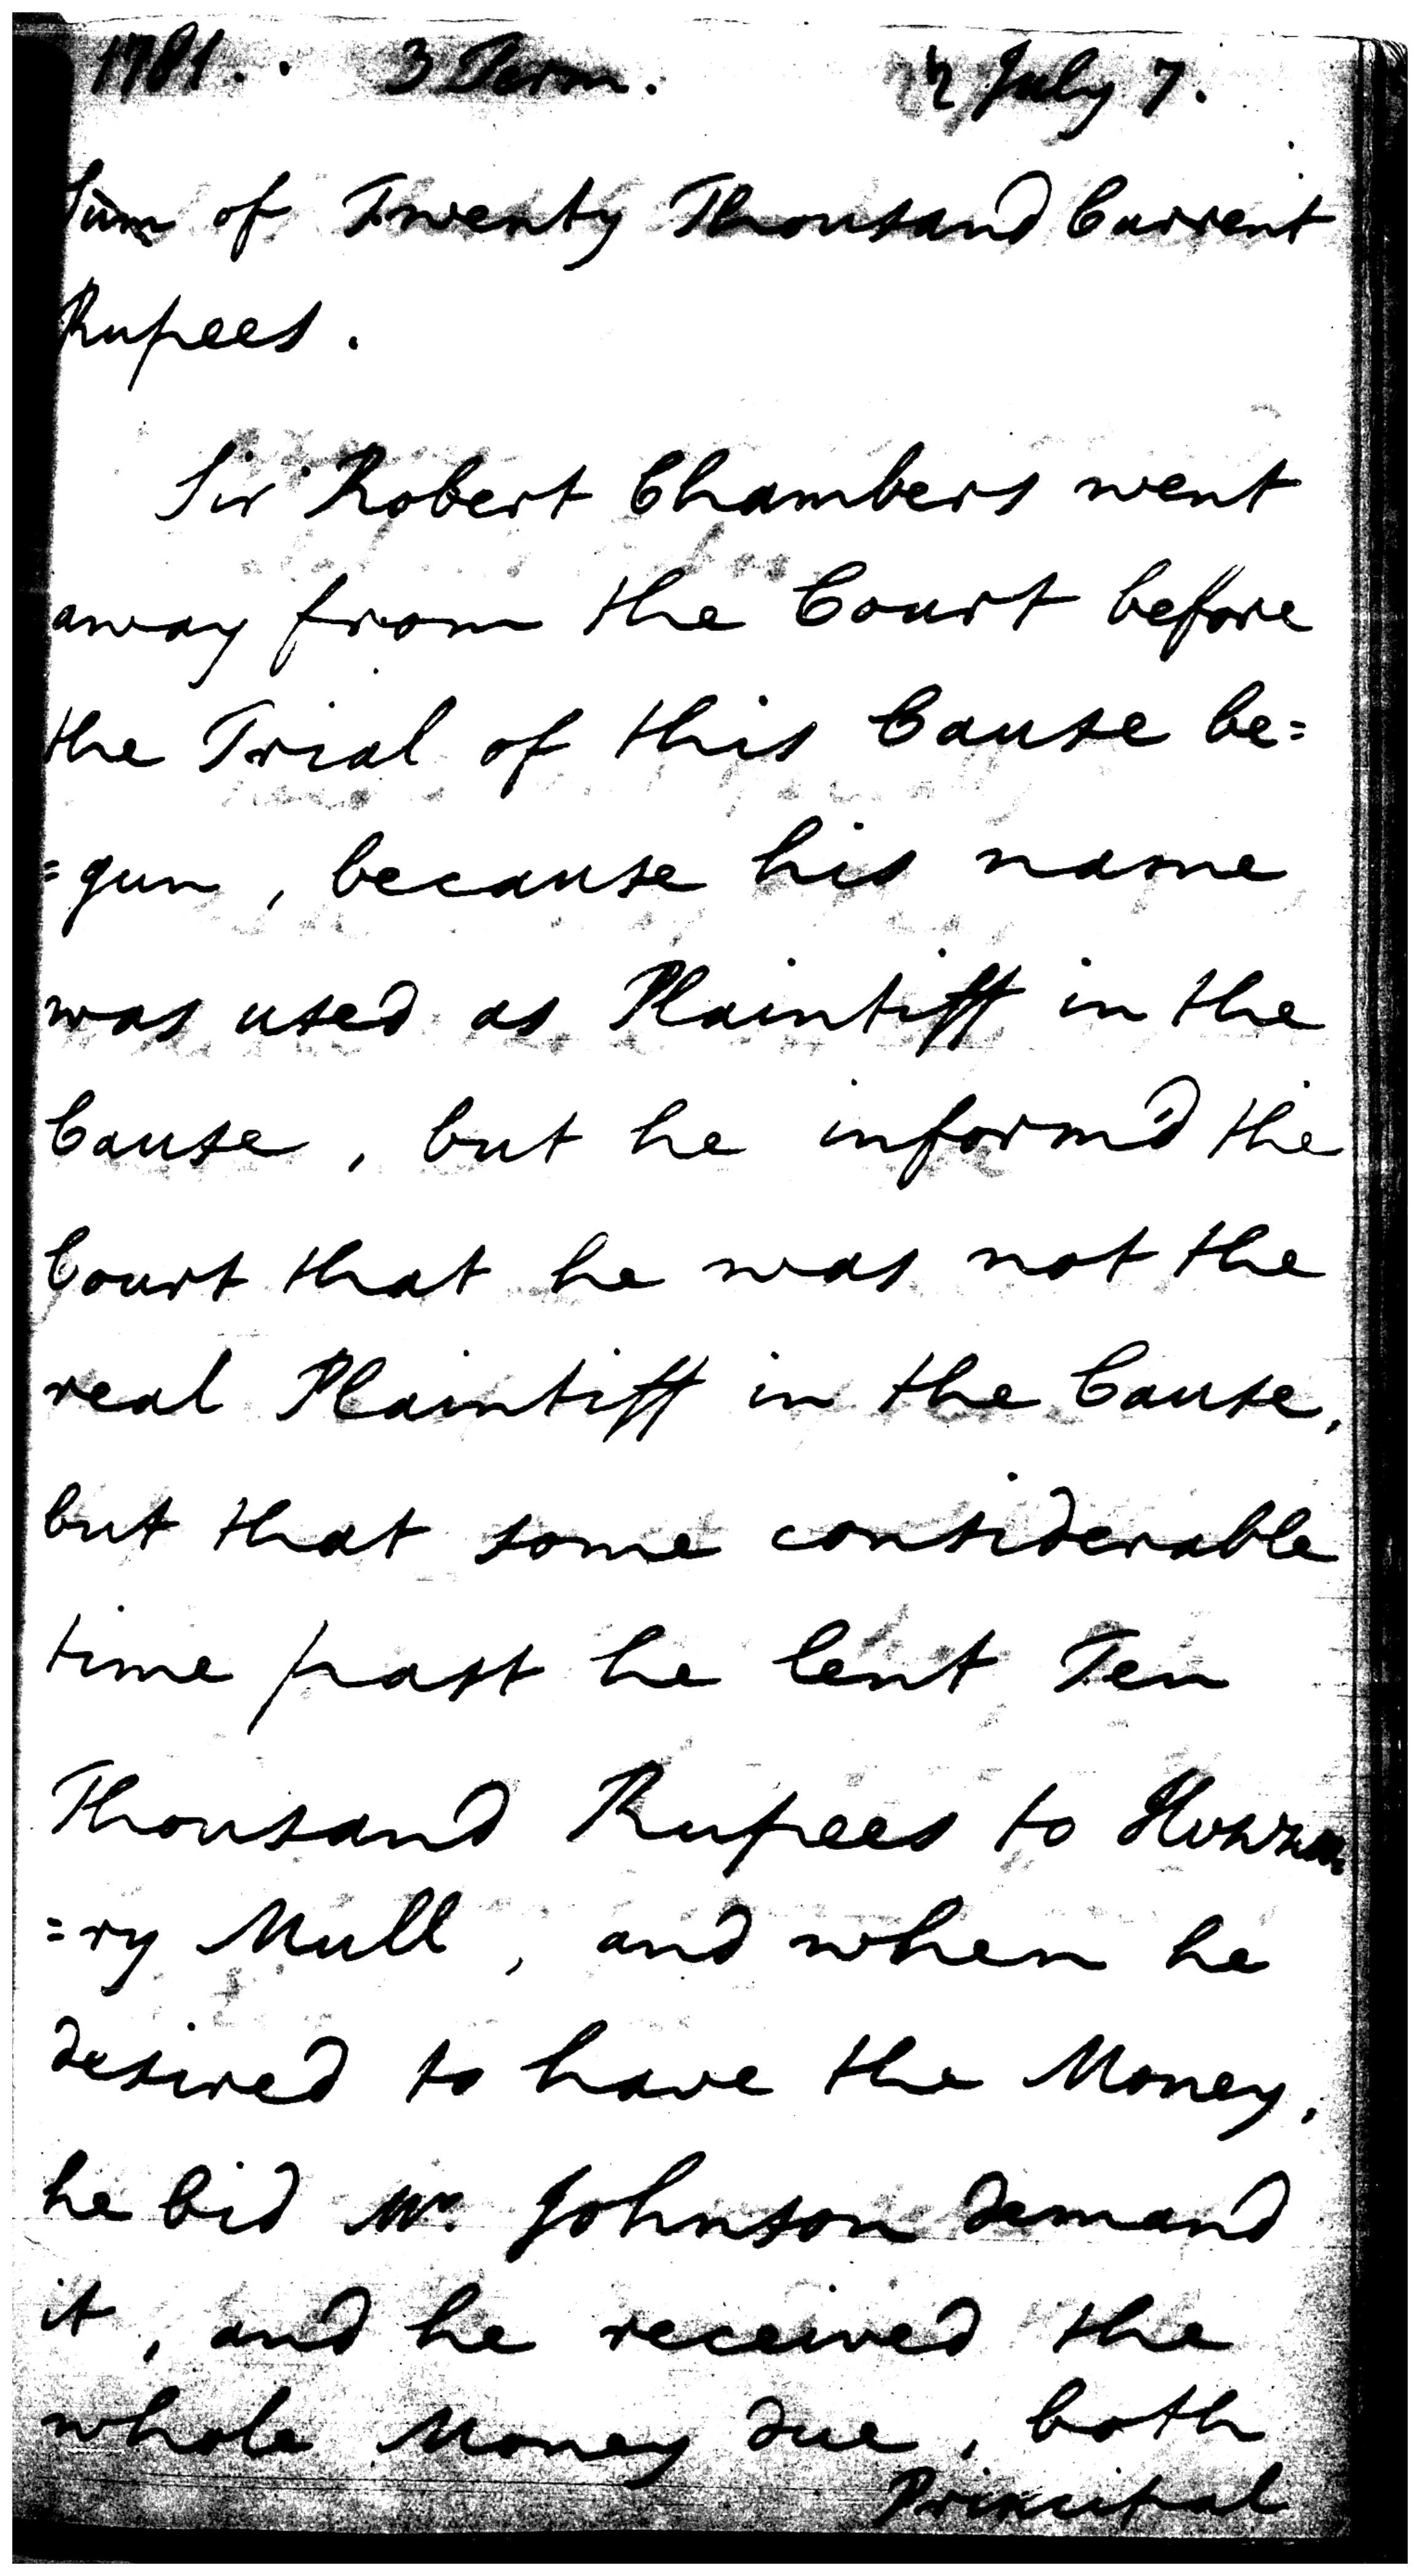 1781. . 3 Term. July 7.
Sum of Twenty Thousand Current
Rupees.
Sir Robert Chambers went
away from the Court before
the Trial of this Cause be=
=gun, because his name
was used as Plaintiff in the
Cause, but he inform'd the
Court that he was not the
real Plaintiff in the Cause,
but that some considerable
time past he lent Ten
Thousand Rupees to
=ry Mull, and when he
desired to have the Money,
he bid Mr. Johnson demand
it, and he received the
whole Money due, both
Principal